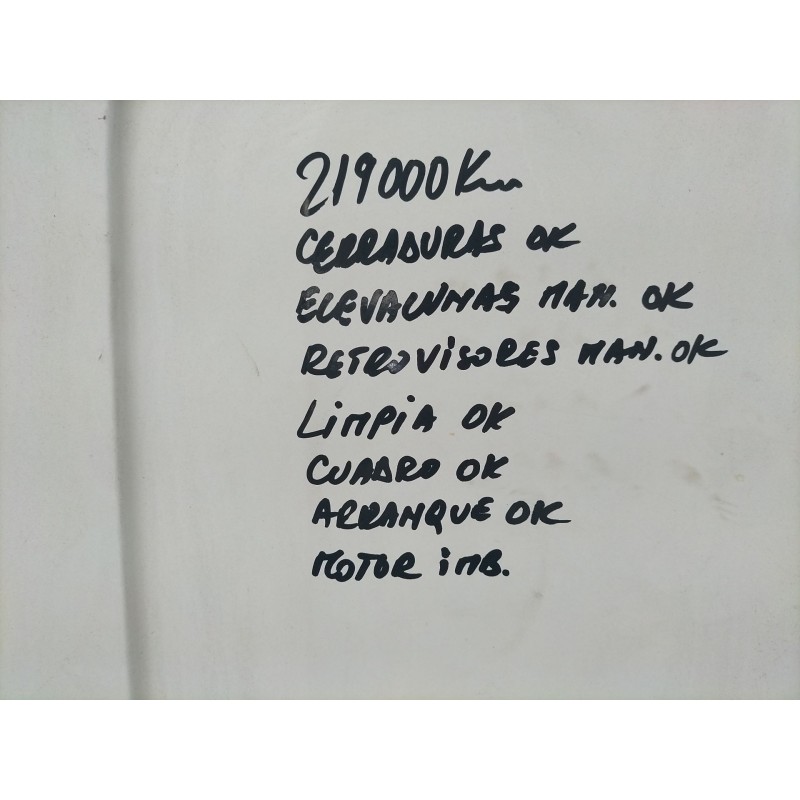 219000 Km
CERRADURAS OK
ELEVALUNAS MAN. OK
RETROVISORES MAN. OK
LIMPIA OK
CUADRO OK
ARRANQUE OK
MOTOR IMB.